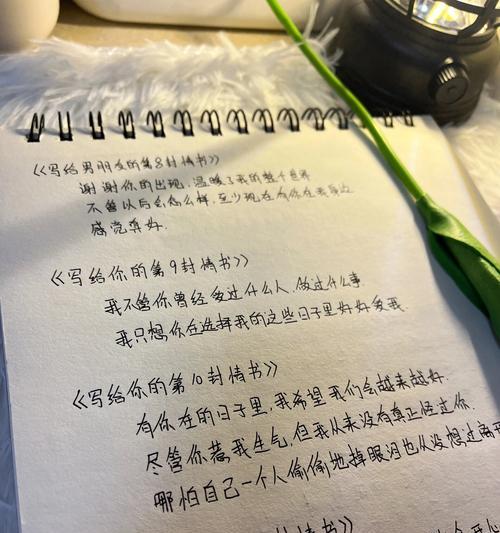 《写给男朋友的第8封情书》
谢谢你的出现，温暖了我的整个世界
不管以后会怎么样，至少现在有你在我身边
感觉真好.
《写给你的第9封情书》
我不管你曾经爱过什么人，做过什么事
我只想你在选择我的这些日子里好好爱我.
《写给你的第10封情书》
有你在的日子里，我希望我们会越来越好.
尽管你惹我生气，但我从来没有真正怪过你.
哪怕自己一个人偷偷地掉眼泪也从没想过离开
封情书》